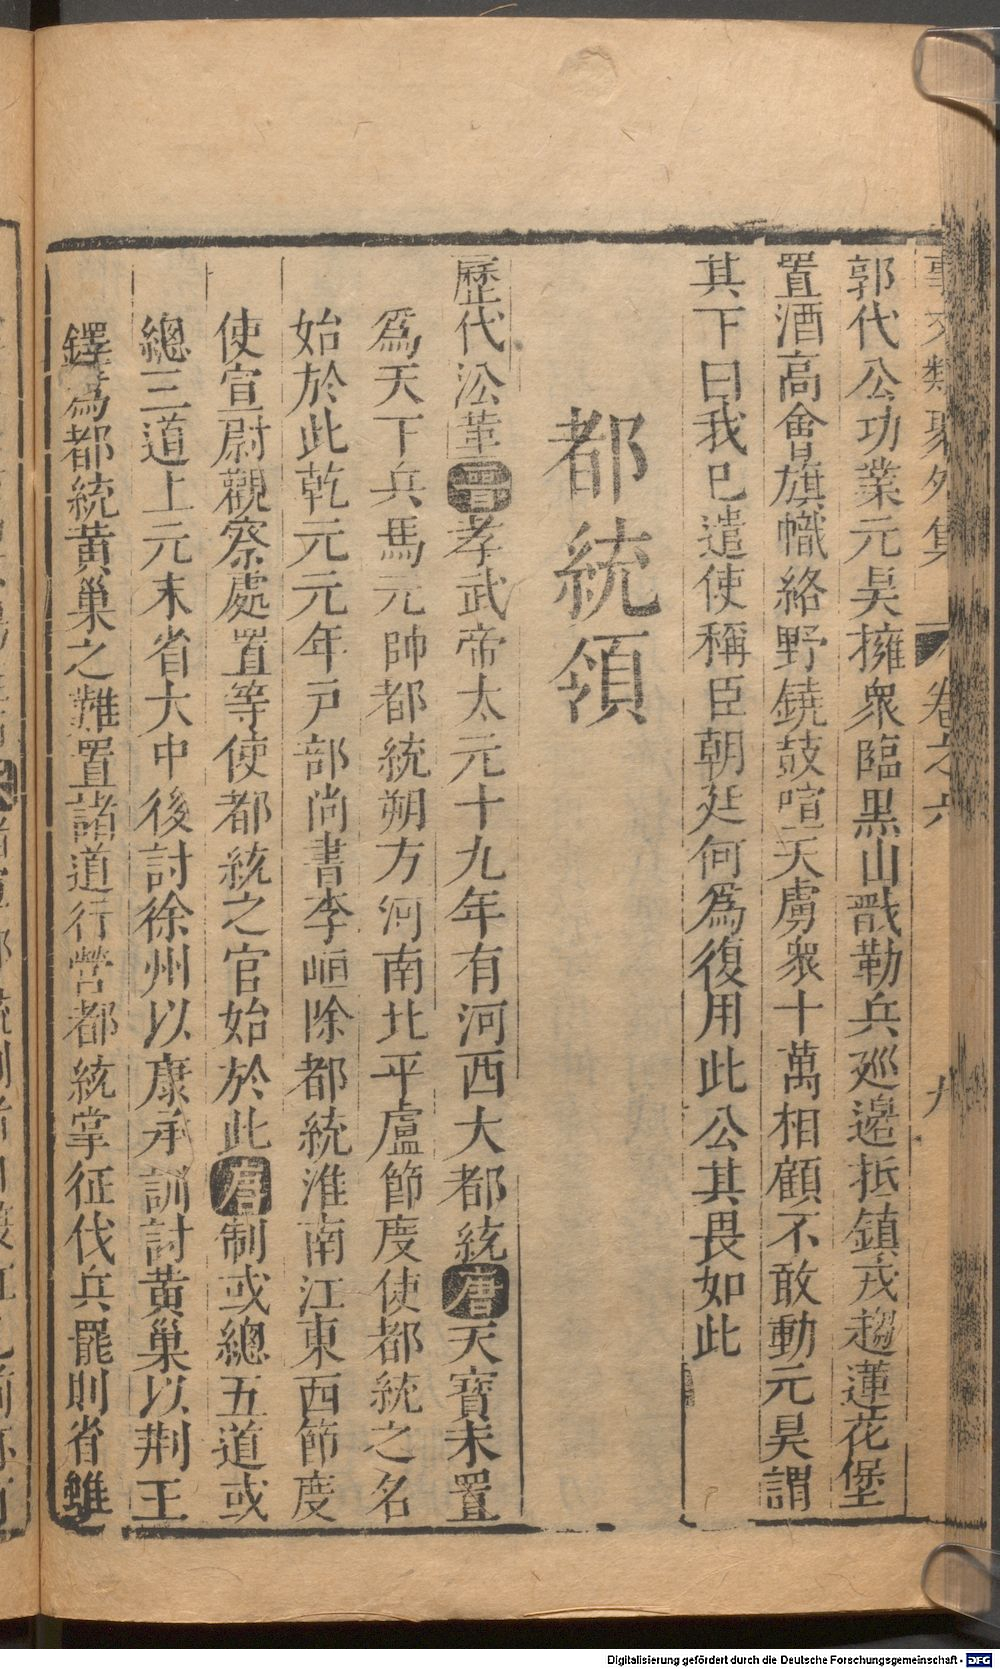 事文類聚外集 卷之六 九
郭代公功業元昊擁衆臨黑山戬勒兵廵邊抵鎮戎趨蓮花堡
置酒高會旗幟絡野鐃鼓喧天虜衆十萬相顧不敢動元昊謂
其下曰我已遣使稱臣朝廷何爲復用此公其畏如此
都統領
歷代㳂革晉孝武帝太元十九年有河西大都統唐天寶末置
爲天下兵馬元帥都統朔方河南北平盧節度使都統之名
始於此乾元元年戸部尚書李峘除都統淮南江東西節度
使宣尉觀察處置等使都統之官始於此唐制或總五道或
總三道上元末省大中後討徐州以康承訓討黃巢以荆王
鐸爲都統黃巢之難置諸道行營都統掌征伐兵罷則省雖
Digitalisierung gefördert durch die Deutsche Forschungsgemeinschaft - DFG